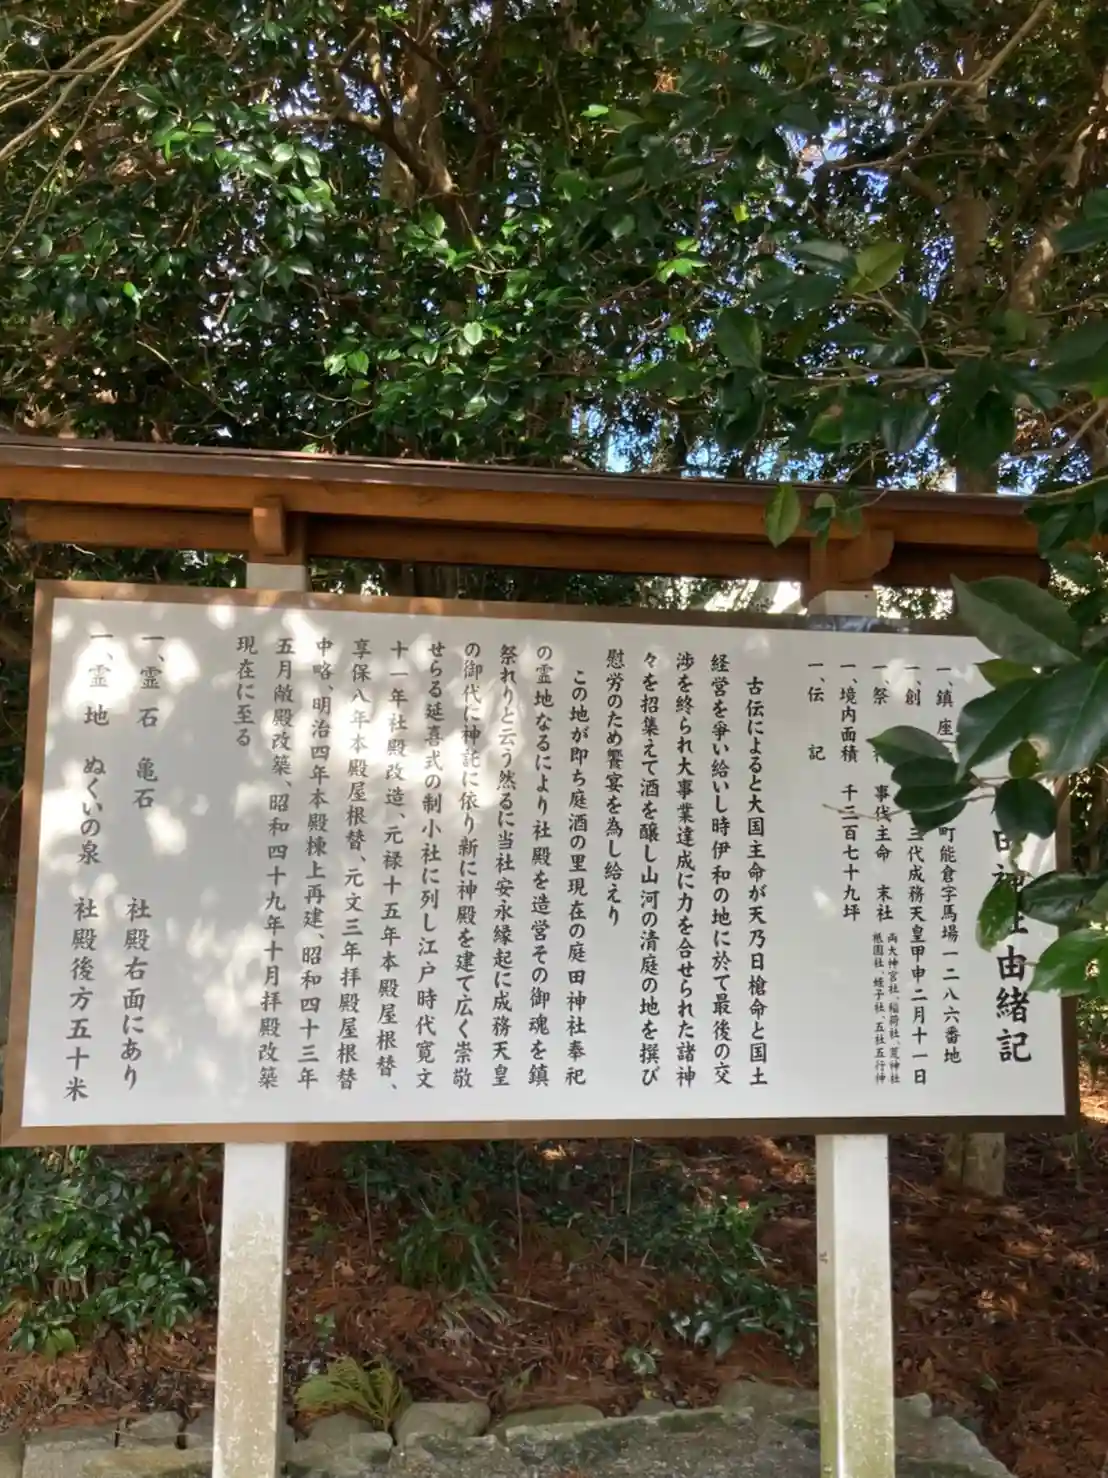 田神社由緒記
一、鎮座
町能倉字馬場一二八六番地
一、創
三代成務天皇甲申二月十一日
一、祭 神 事代主命 末社 両大神宮社、稲荷社、荒神社
祇園社、蛭子社、五社五行神
一、境内面積 千三百七十九坪
一、伝 記
古伝によると大国主命が天乃日槍命と国土
経営を爭い給いし時伊和の地に於て最後の交
渉を終られ大事業達成に力を合せられた諸神
々を招集えて酒を醸し山河の清庭の地を撰び
慰労のため饗宴を為し給えり
この地が即ち庭酒の里現在の庭田神社奉祀
の霊地なるにより社殿を造営その御魂を鎮
祭れりと云う然るに当社安永縁起に成務天皇
の御代に神託に依り新に神殿を建て広く崇敬
せらる延喜式の制小社に列し江戸時代寛文
十一年社殿改造、元禄十五年本殿屋根替、
享保八年本殿屋根替、元文三年拝殿屋根替
中略、明治四年本殿棟上再建、昭和四十三年
五月敞殿改築、昭和四十九年十月拝殿改築
現在に至る
一、霊石 亀石 社殿右面にあり
一、霊地 ぬくいの泉 社殿後方五十米